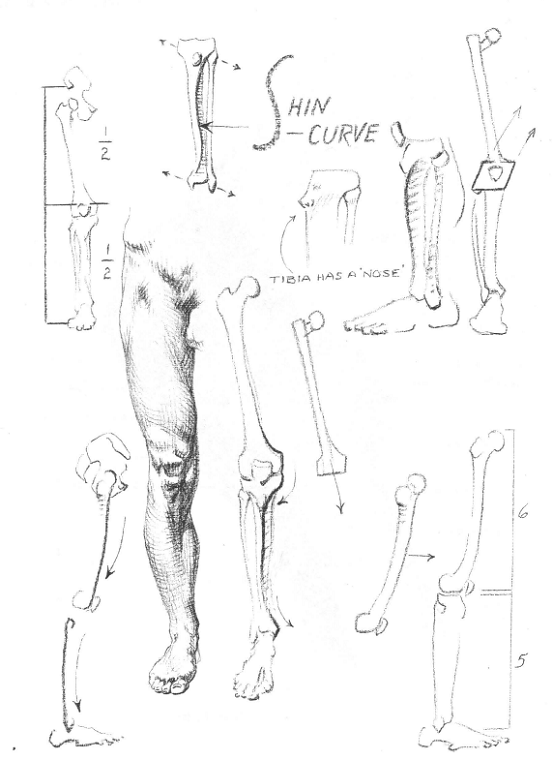 SHIN
—CURVE
1/2
1/2
TIBIA HAS A 'NOSE'
6
5